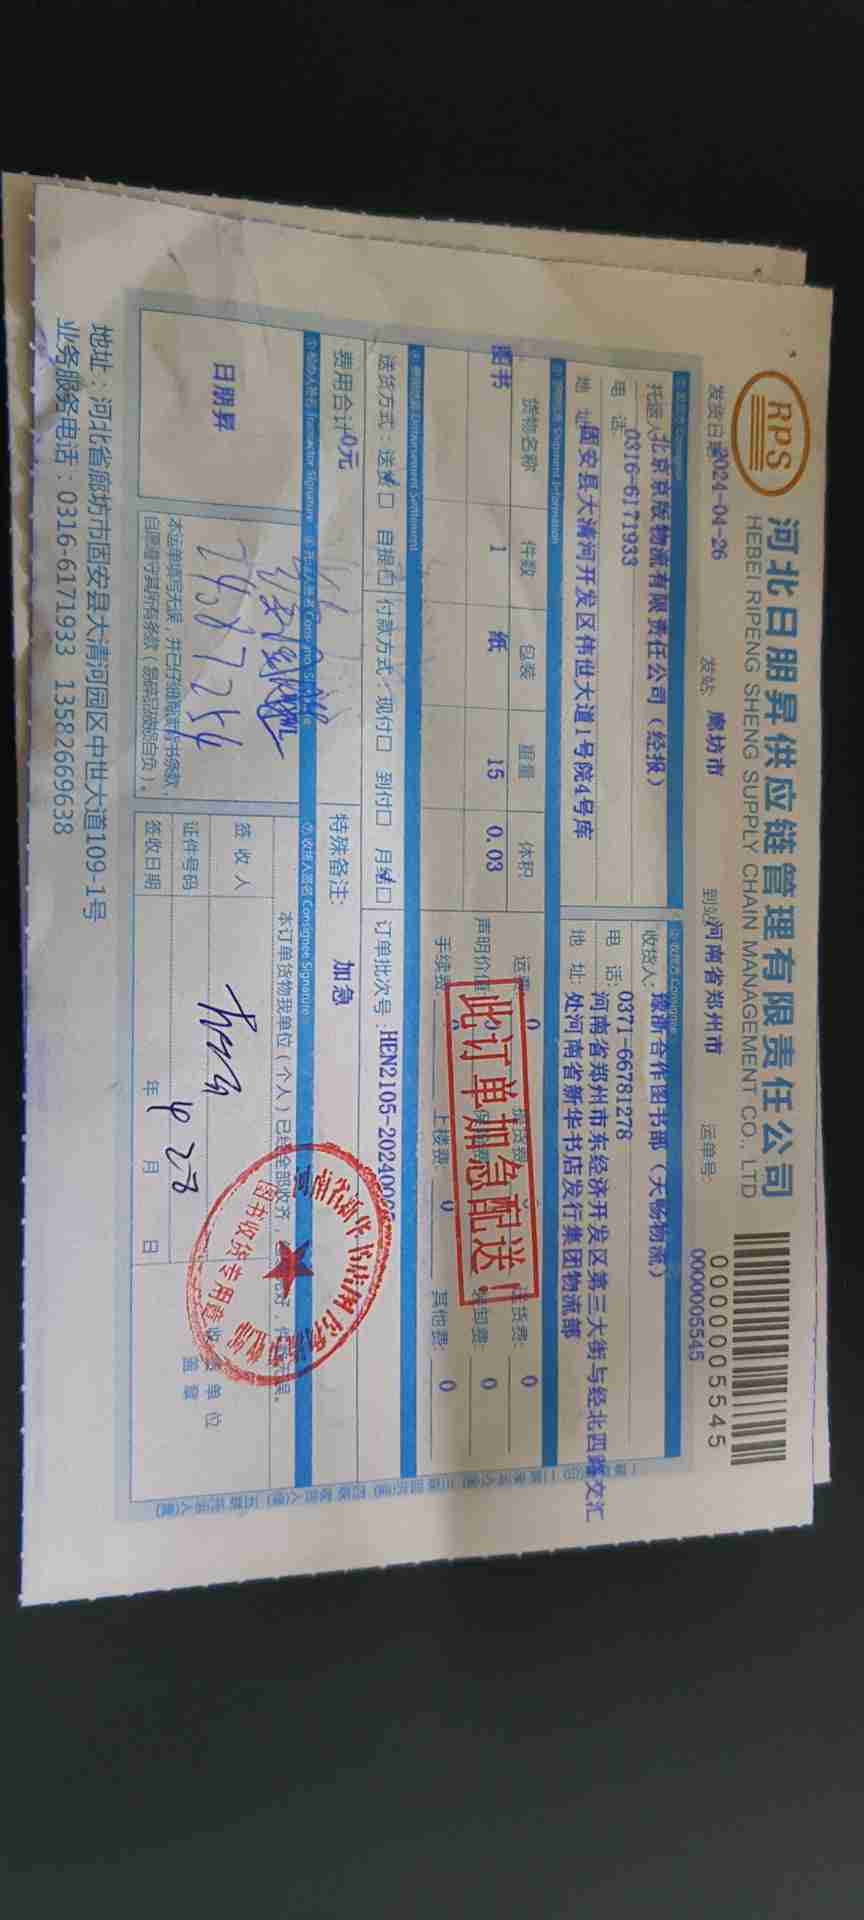 RPS
河北日朋昇供应链管理有限责任公司
HEBEI RIPENG SHENG SUPPLY CHAIN MANAGEMENT CO., LTD
0000005545
发货日期 2024-04-26 发站: 廊坊市 到站: 河南省郑州市 运单号: 0000005545
托运人: 北京京版物流有限责任公司(经报)
电 话: 0316-6171933
地 址: 固安县大清河开发区伟世大道1号院4号库
收货人: 豫浙合作图书部(天畅物流)
电 话: 0371-66781278
地 址: 河南省郑州市东经济开发区第三大街与经北四路交汇
处河南省新华书店发行集团物流部
Shipment Information
货物名称 件数 包装 重量 体积
图书 1 纸 15 0.03
运费: 0 提货费: 送货费: 0
声明价值: 保险费: 0
手续费: 0 上楼费: 0 其他费: 0
此订单加急配送!
Disbursement Settlement
送货方式: 送货 自提 付款方式: 现付 到付 月结 订单批次号:HEN2105-2024000
费用合计 0元 特殊备注: 加急
Transactor Signature Consignee Signature
日朋昇
本运单填写无误,并已仔细阅读背书条款,
自愿遵守其所有条款(易碎品破损自负)。
本订单货物我单位(个人)已经全部收齐,
签 收 人
证件号码
签收日期 年 4 月 28 日
收货单位
盖章
图书收货专用章
地址:河北省廊坊市固安县大清河园区中世大道109-1号
业务服务电话:0316-6171933 13582669638